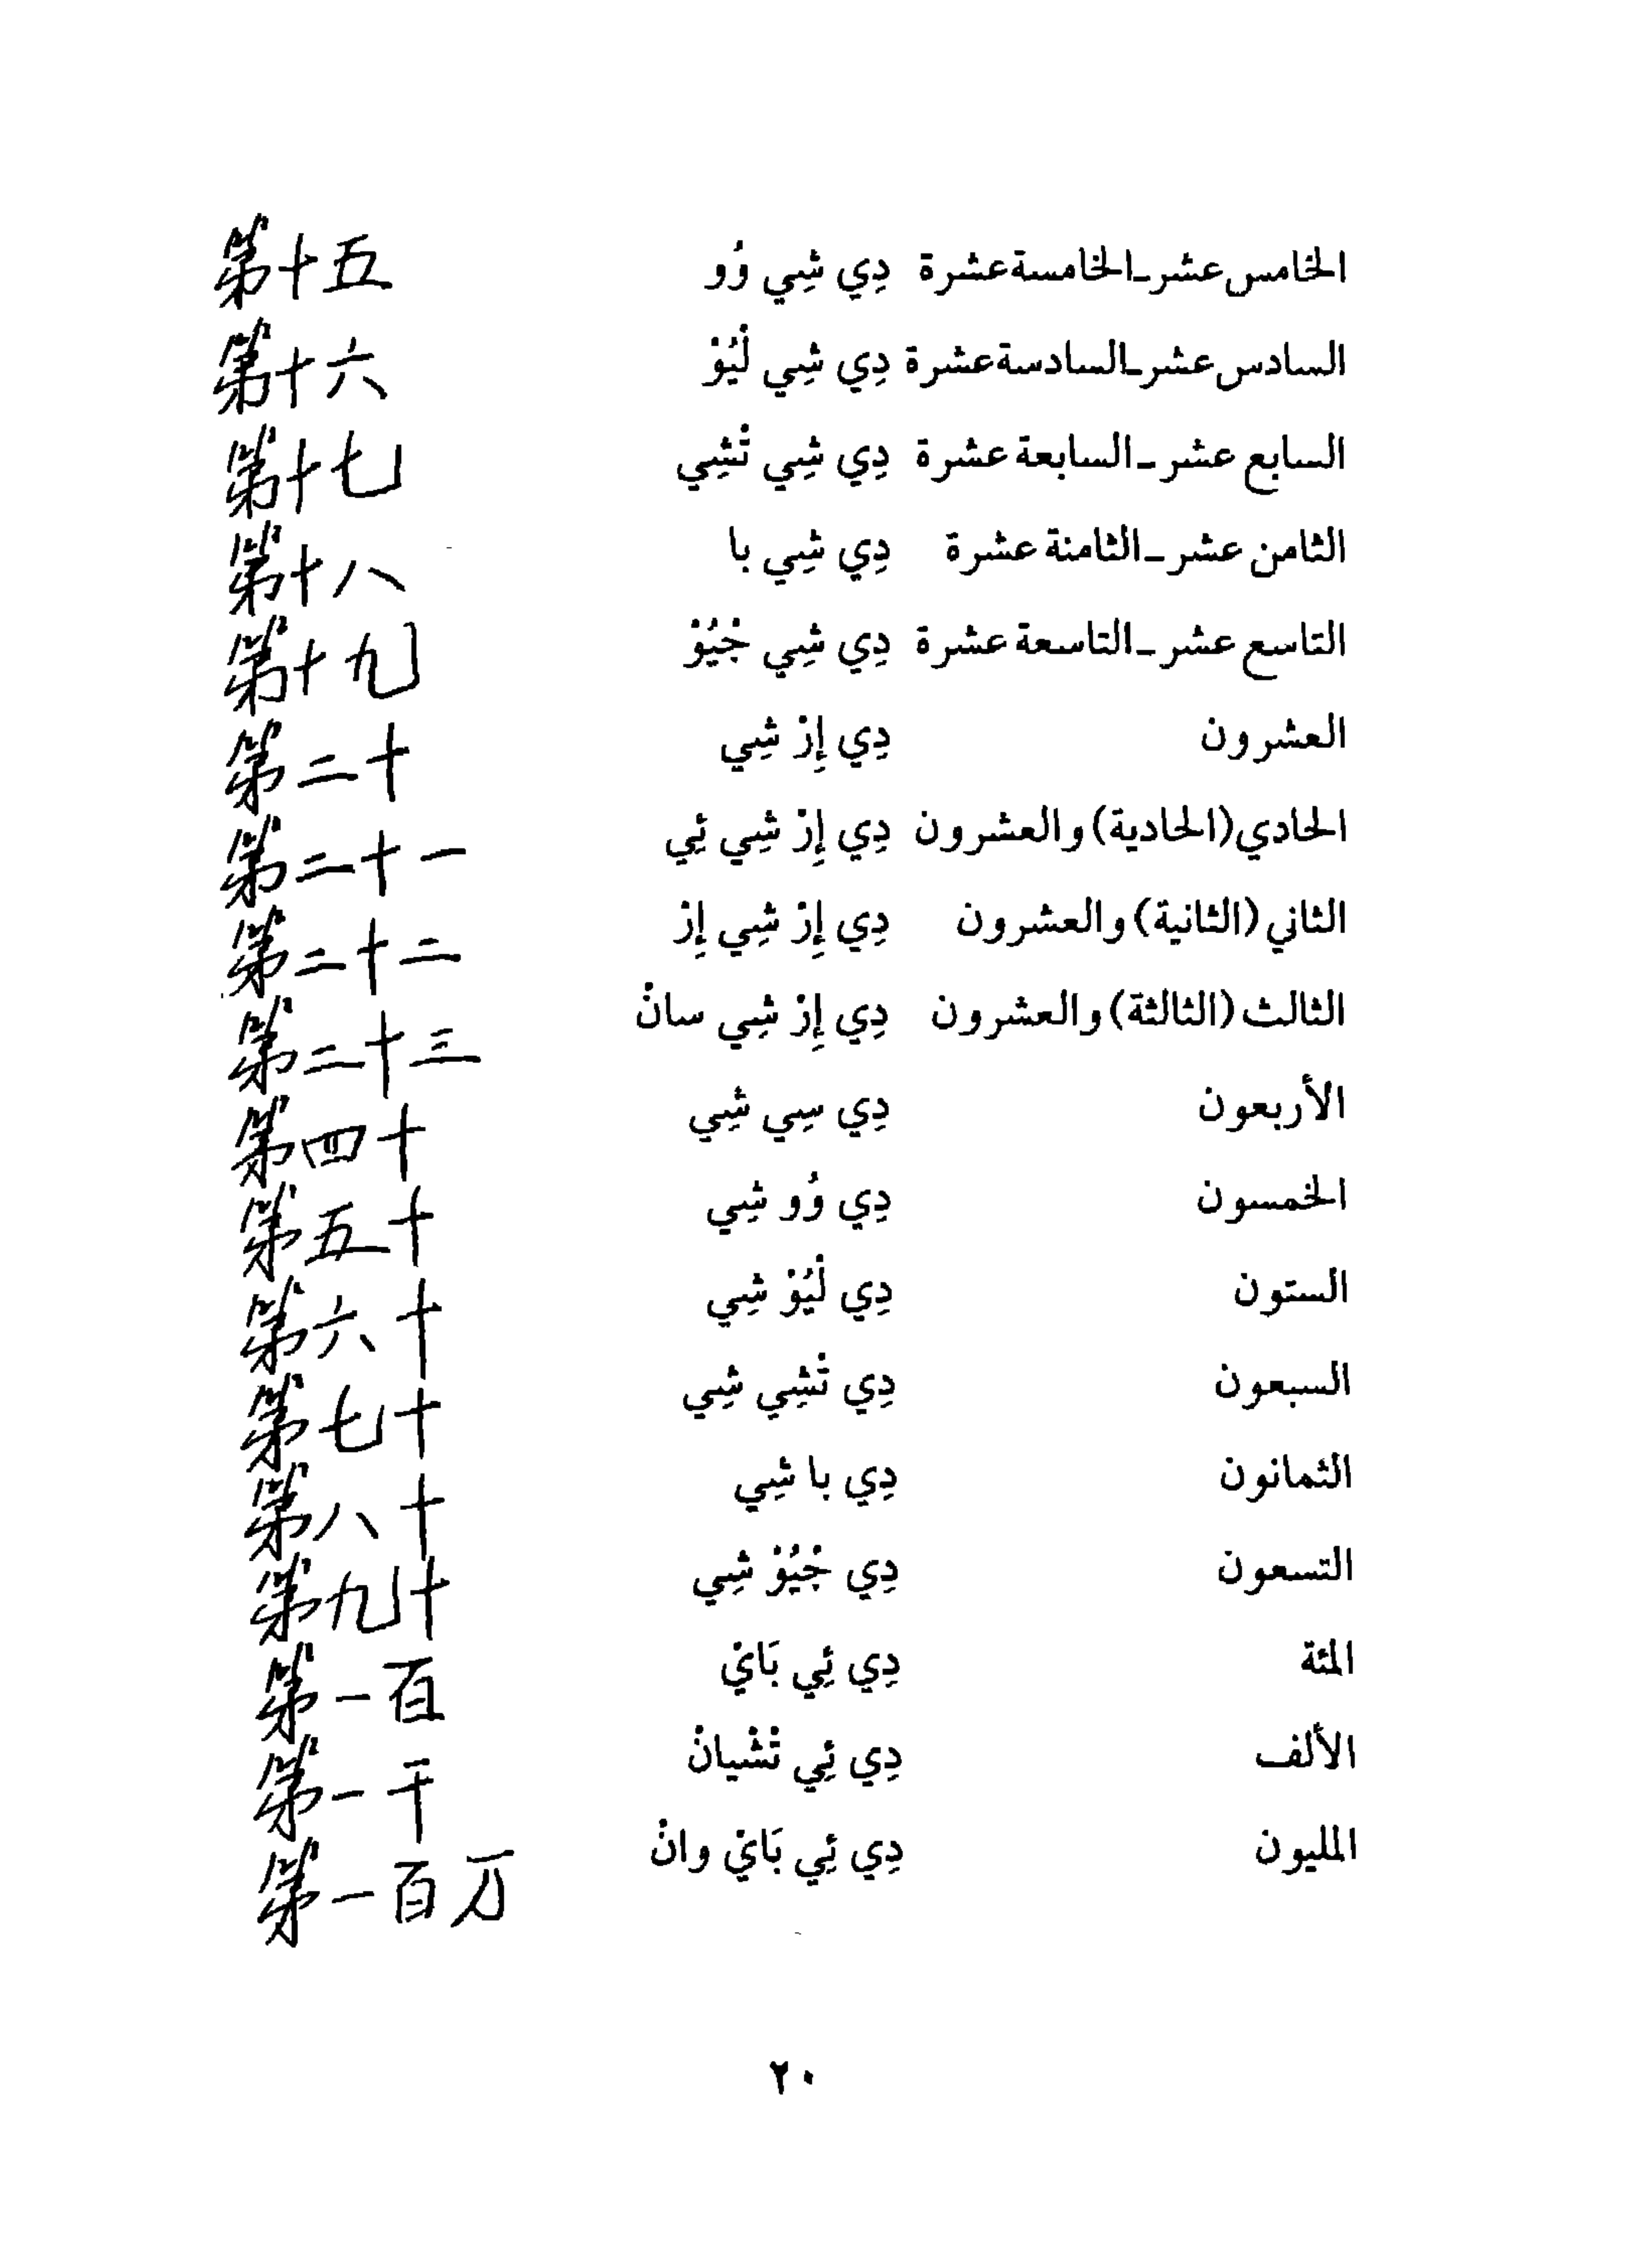 الخامس عشر ـ الخامسة عشرة دِي شِي وُو 第十五
السادس عشر ـ السادسة عشرة دِي شِي لْيُوْ 第十六
السابع عشر ـ السابعة عشرة دِي شِي تْشِي 第十七
الثامن عشر ـ الثامنة عشرة دِي شِي با 第十八
التاسع عشر ـ التاسعة عشرة دِي شِي جْيُوْ 第十九
العشرون دِي إِرْ شِي 第二十
الحادي (الحادية) والعشرون دِي إِرْ شِي ئِي 第二十一
الثاني (الثانية) والعشرون دِي إِرْ شِي إِرْ 第二十二
الثالث (الثالثة) والعشرون دِي إِرْ شِي سانْ 第二十三
الأربعون دِي سِي شِي 第四十
الخمسون دِي وُو شِي 第五十
الستون دِي لْيُوْ شِي 第六十
السبعون دِي تْشِي شِي 第七十
الثمانون دِي با شِي 第八十
التسعون دِي جْيُوْ شِي 第九十
المئة دِي ئِي بَايْ 第一百
الألف دِي ئِي تْشْيانْ 第一千
المليون دِي ئِي بَايْ وانْ 第一百万
٢٠